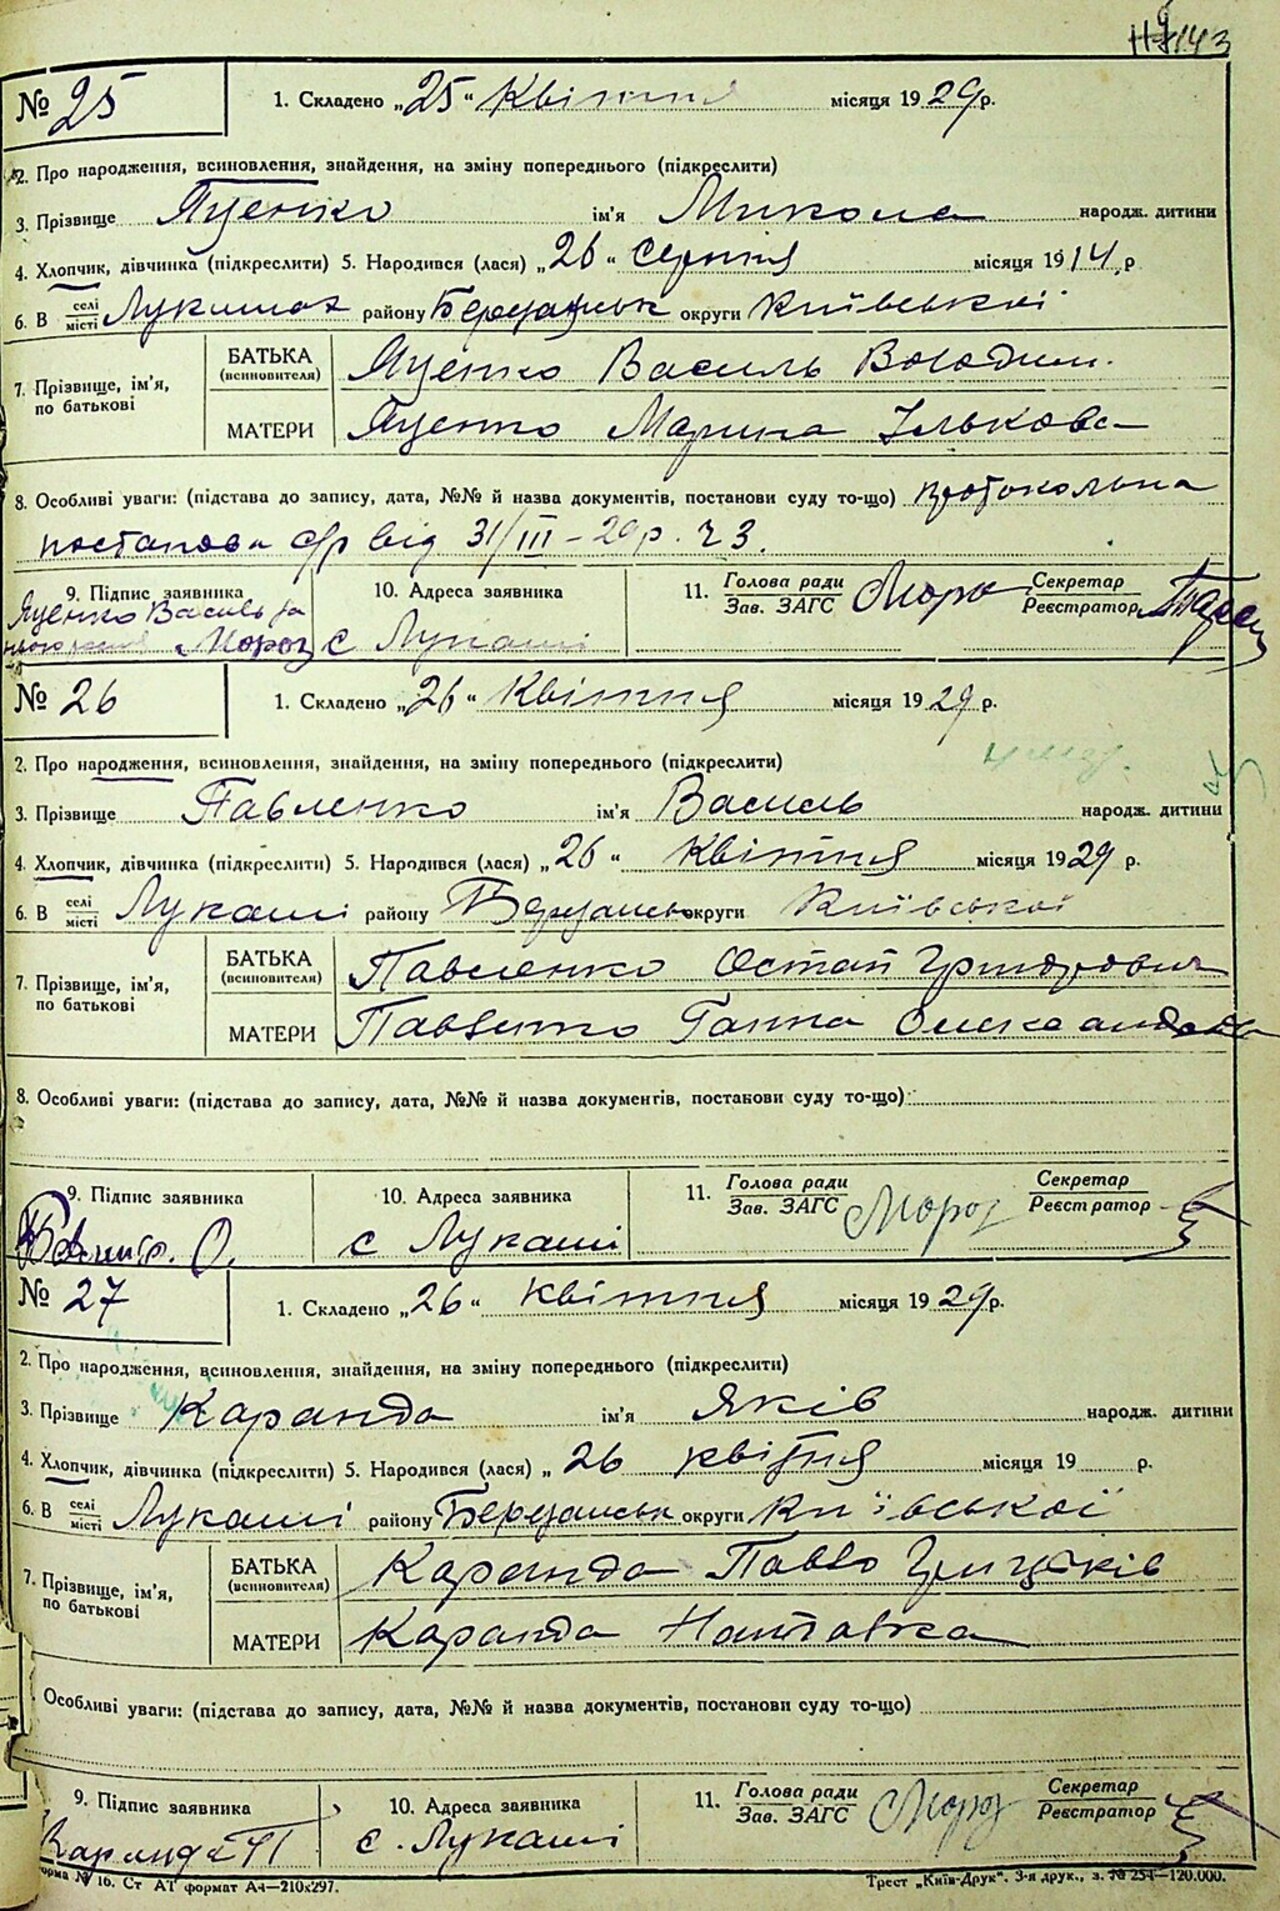 143
№ 25 1. Складено „25“ Квітня місяця 1929 р.
2. Про народження, всиновлення, знайдення, на зміну попереднього (підкреслити)
3. Прізвище Яценко ім'я Микола народж. дитини
4. Хлопчик, дівчинка (підкреслити) 5. Народився (лася) „26“ серпня місяця 1914 р
6. В селі/місті Лукашах району Березанськ округи Київської
7. Прізвище, ім'я, по батькові БАТЬКА (всиновителя) Яценко Василь Володим.
МАТЕРИ Яценко Марина Ількова
8. Особливі уваги: (підстава до запису, дата, №№ й назва документів, постанови суду то-що) протокольна
постанова с/р від 31/III – 29 р. ч 3.
9. Підпис заявника 10. Адреса заявника 11. Голова ради/Зав. ЗАГС Мороз Секретар/Реєстратор
Яценко Василь за
нього Мороз с Лукаші
№ 26 1. Складено „26“ Квітня місяця 1929 р.
2. Про народження, всиновлення, знайдення, на зміну попереднього (підкреслити)
3. Прізвище Павленко ім'я Василь народж. дитини
4. Хлопчик, дівчинка (підкреслити) 5. Народився (лася) „26“ Квітня місяця 1929 р.
6. В селі/місті Лукаші району Березанськ округи Київської
7. Прізвище, ім'я, по батькові БАТЬКА (всиновителя) Павленко Остап Григорович
МАТЕРИ Павленко Ганна Олександровна
8. Особливі уваги: (підстава до запису, дата, №№ й назва документів, постанови суду то-що)
9. Підпис заявника 10. Адреса заявника 11. Голова ради/Зав. ЗАГС Мороз Секретар/Реєстратор
О. с Лукаші
№ 27 1. Складено „26“ квітня місяця 1929 р.
2. Про народження, всиновлення, знайдення, на зміну попереднього (підкреслити)
3. Прізвище Каранда ім'я Яків народж. дитини
4. Хлопчик, дівчинка (підкреслити) 5. Народився (лася) „26 квітня місяця 19 р.
6. В селі/місті Лукаші району Березанськ округи Київської
7. Прізвище, ім'я, по батькові БАТЬКА (всиновителя) Каранда Павло Грицьків
МАТЕРИ Каранда Наталка
Особливі уваги: (підстава до запису, дата, №№ й назва документів, постанови суду то-що)
9. Підпис заявника 10. Адреса заявника 11. Голова ради/Зав. ЗАГС Мороз Секретар/Реєстратор
Каранда П с. Лукаші
орма № 16. Ст АТ формат А4—210х297. Трест „Київ-Друк“. 3-я друк., з. № 254—120.000.